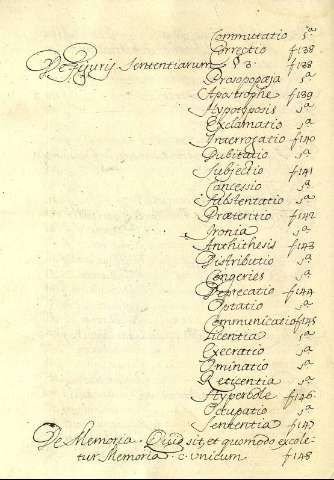 Commutatio sª
Correctio f138
De Figuris Sententiarum § 3. f138
Prosopopæja sª
Apostrophe f139
Hypotoposis sª
Exclamatio sª
Interrogatio f140
Dubitatio sª
Subjectio f141
Concessio sª
Substentatio sª
Præteritio f142
Ironia sª
Anthithesis f143
Distributio sª
Congeries sª
Deprecatio f144
Optatio sª
Communicatio f145
Licentia sª
Execratio sª
Ominatio sª
Reticentia sª
Hyperbole f146
Ocupatio sª
Sententia f147
De Memoria. Quid sit, et quomodo excole-
tur Memoria. c. Unicum f148